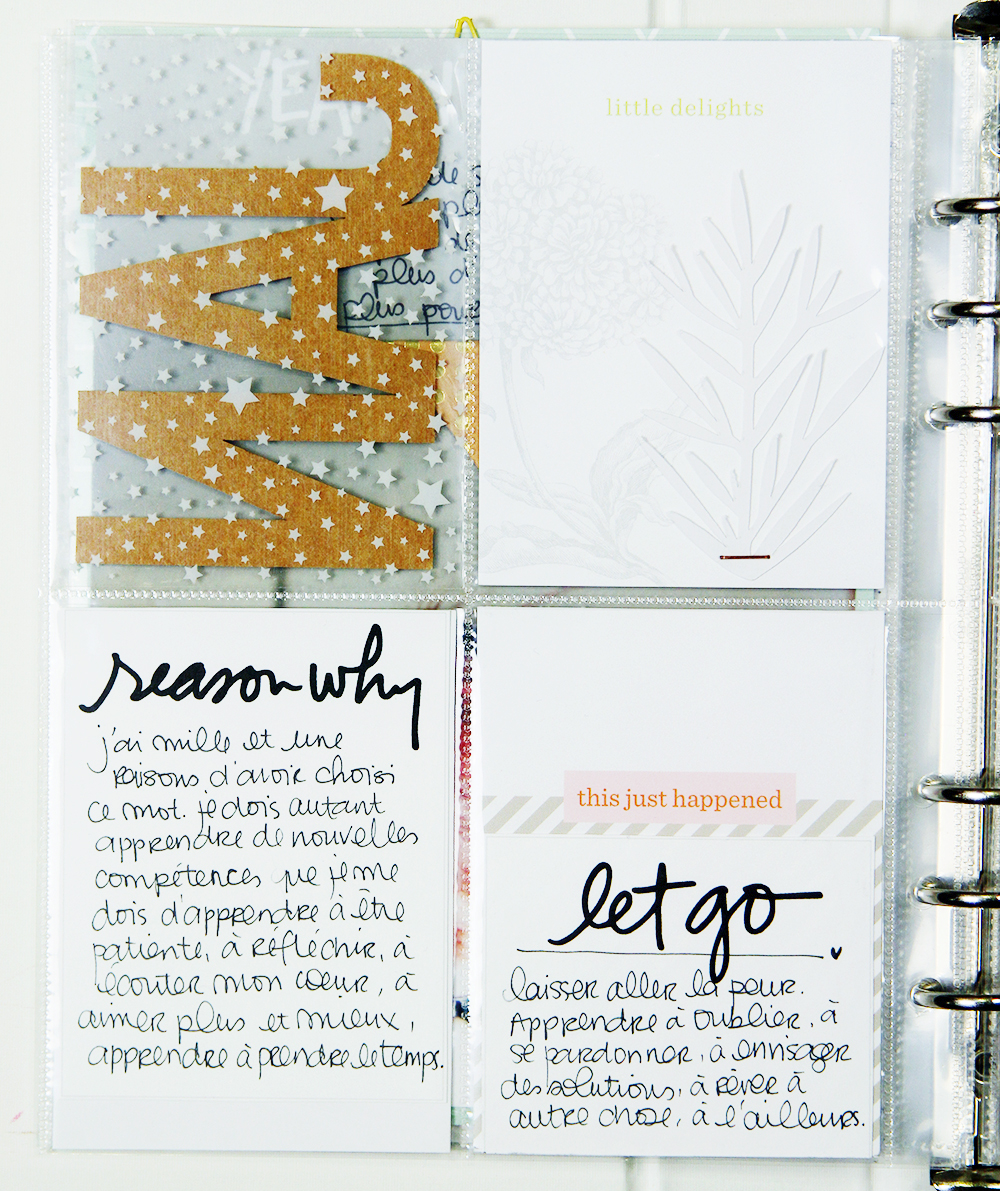 JAN
de
plus d
plus pou
little delights
reason why
j'ai mille et une
raisons d'avoir choisi
ce mot. je dois autant
apprendre de nouvelles
compétences que je me
dois d'apprendre à être
patiente, à réfléchir, à
écouter mon cœur, à
aimer plus et mieux,
apprendre à prendre le temps.
this just happened
let go
laisser aller la peur.
Apprendre à oublier, à
se pardonner, à envisager
des solutions, à rêver à
autre chose, à l'ailleurs.